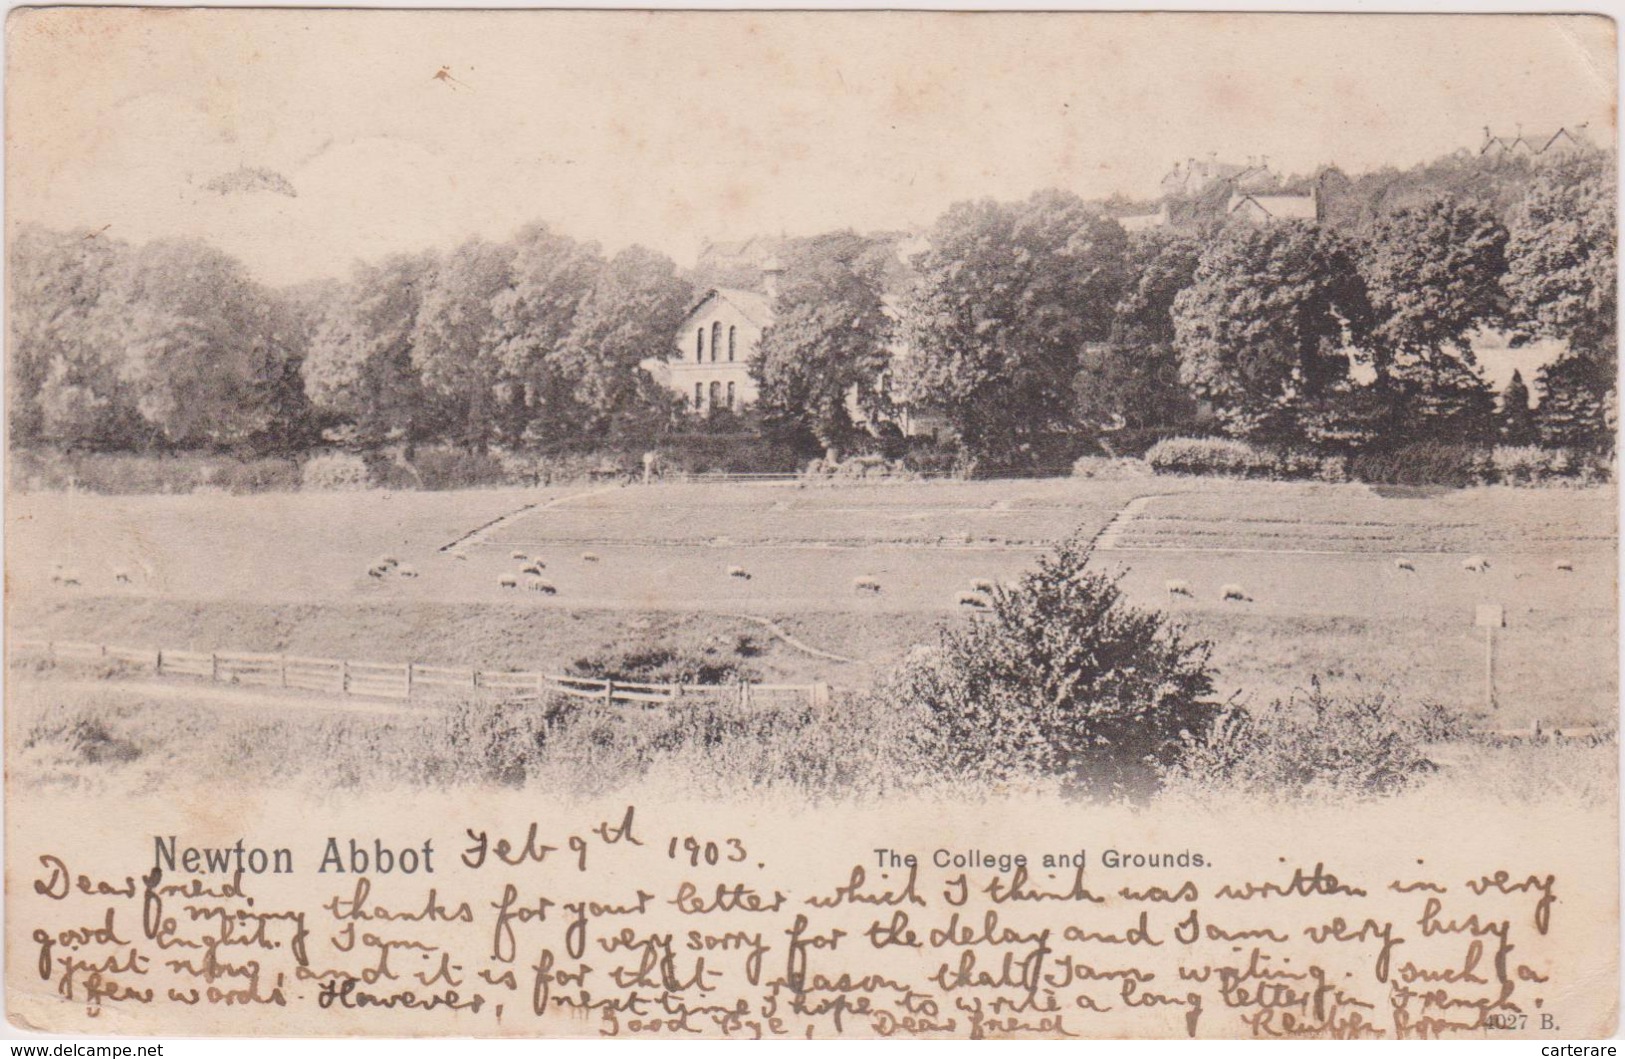 Newton Abbot Feb 9th 1903.
The College and Grounds.
Dear freid,
many thanks for your letter which I think was written in very
good English. I am very sorry for the delay and I am very busy
just now, and it is for that reason that I am writing. such a
few words. However, next time I hope to write a long letter in French.
Good Bye, Dear freid
4027 B.
www.delcampe.net
carterare